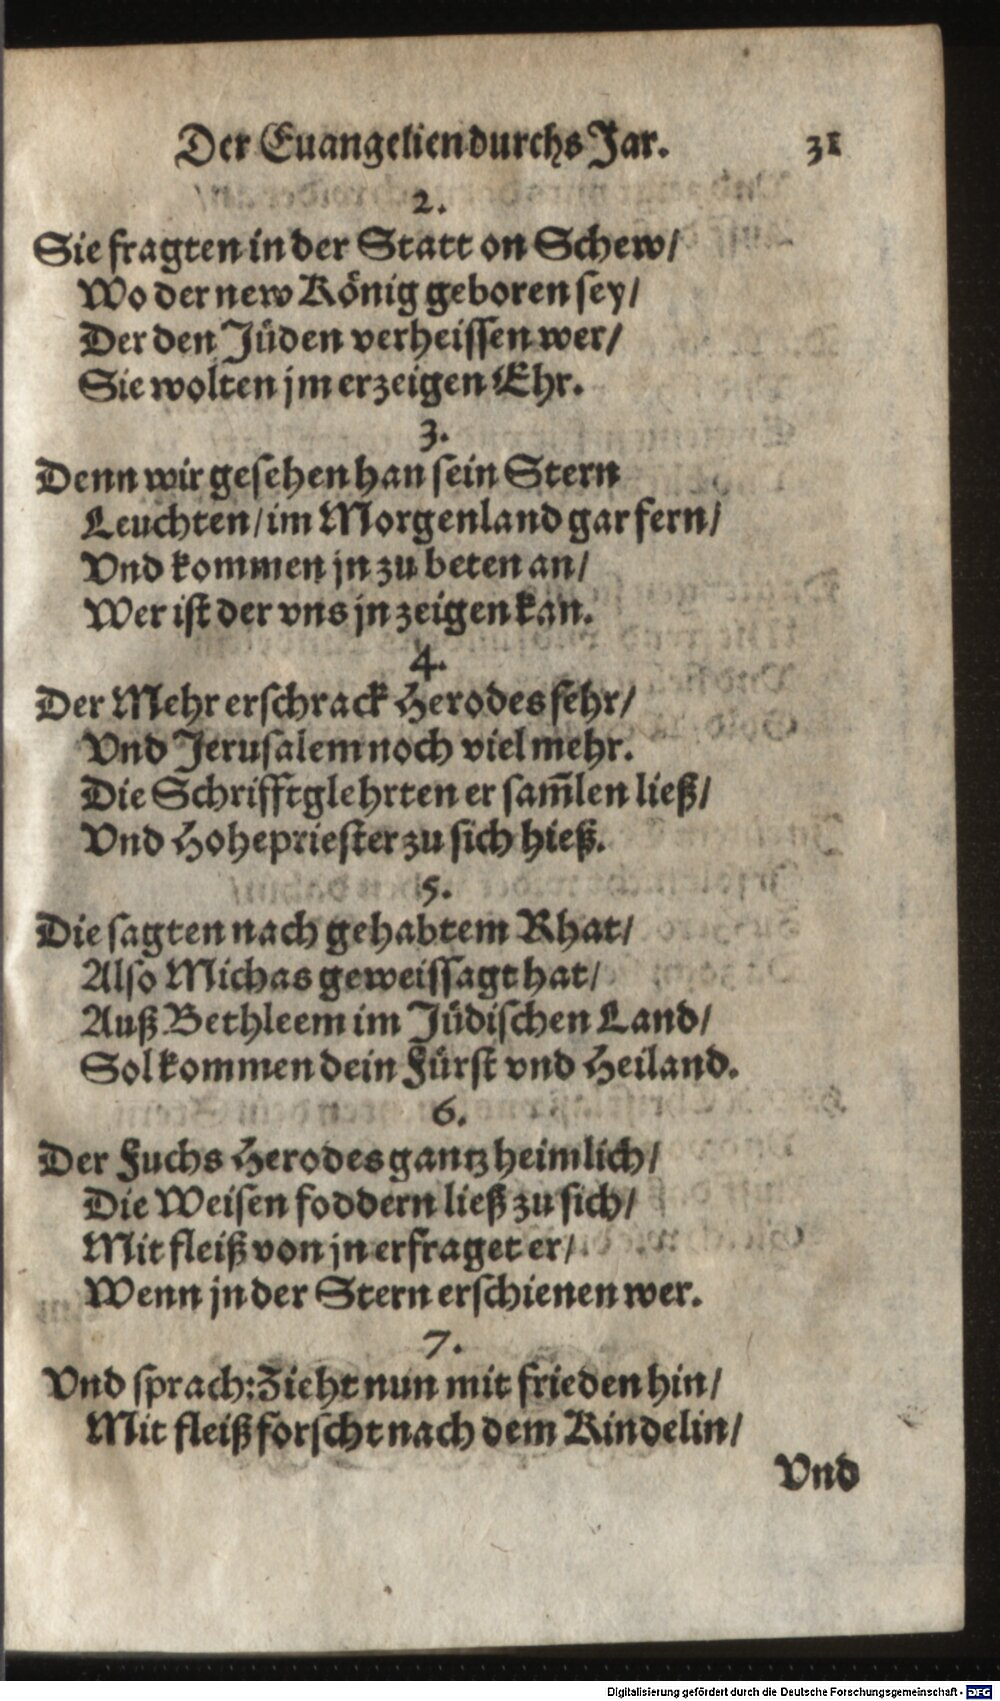 Der Euangelien durchs Jar. 31
2.
Sie fragten in der Statt on Schew/
Wo der new König geboren sey/
Der den Jüden verheissen wer/
Sie wolten jm erzeigen Ehr.
3.
Denn wir gesehen han sein Stern
Leuchten/ im Morgenland gar fern/
Vnd kommen jn zu beten an/
Wer ist der vns jn zeigen kan.
4.
Der Mehr erschrack Herodes sehr/
Vnd Jerusalem noch viel mehr.
Die Schrifftglehrten er sam̃len ließ/
Vnd Hohepriester zu sich hieß.
5.
Die sagten nach gehabtem Rhat/
Also Michas geweissagt hat/
Auß Bethleem im Jüdischen Land/
Sol kommen dein Fürst vnd Heiland.
6.
Der Fuchs Herodes gantz heimlich/
Die Weisen foddern ließ zu sich/
Mit fleiß von jn erfraget er/
Wenn jn der Stern erschienen wer.
7.
Vnd sprach: Zieht nun mit frieden hin/
Mit fleiß forscht nach dem Kindelin/
Vnd
Digitalisierung gefördert durch die Deutsche Forschungsgemeinschaft - DFG